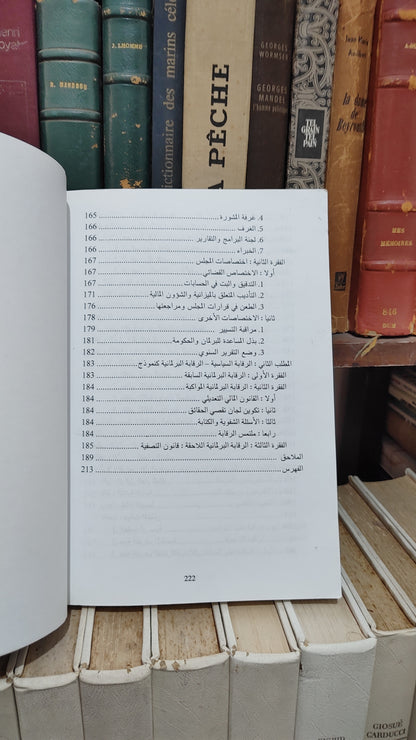 J. LHOMME
dictionnaire des marins
PÊCHE
GEORGES WORMSER
GEORGES MANDEL
l'homme politique
TEL GRAIN TEL PAIN
MES MÉMOIRES
846
4. غرفة المشورة 165
5. الغرف 166
6. لجنة البرامج والتقارير 166
7. الخبراء 166
الفقرة الثانية : اختصاصات المجلس 167
أولا : الاختصاص القضائي 167
1. التدقيق والبت في الحسابات 167
2. التأديب المتعلق بالميزانية والشؤون المالية 171
3. الطعن في قرارات المجلس ومراجعتها 176
ثانيا : الاختصاصات الأخرى 178
1. مراقبة التسيير 179
2. بذل المساعدة للبرلمان والحكومة 181
3. وضع التقرير السنوي 182
المطلب الثاني : الرقابة السياسية – الرقابة البرلمانية كنموذج 183
الفقرة الأولى : الرقابة البرلمانية السابقة 183
الفقرة الثانية : الرقابة البرلمانية المواكبة 184
أولا : القانون المالي التعديلي 184
ثانيا : تكوين لجان تقصي الحقائق 184
ثالثا : الأسئلة الشفوية والكتابة 184
رابعا : ملتمس الرقابة 184
الفقرة الثالثة : الرقابة البرلمانية اللاحقة : قانون التصفية 185
الملاحق 189
الفهرس 213
222
GIOSUÈ CARDUCCI